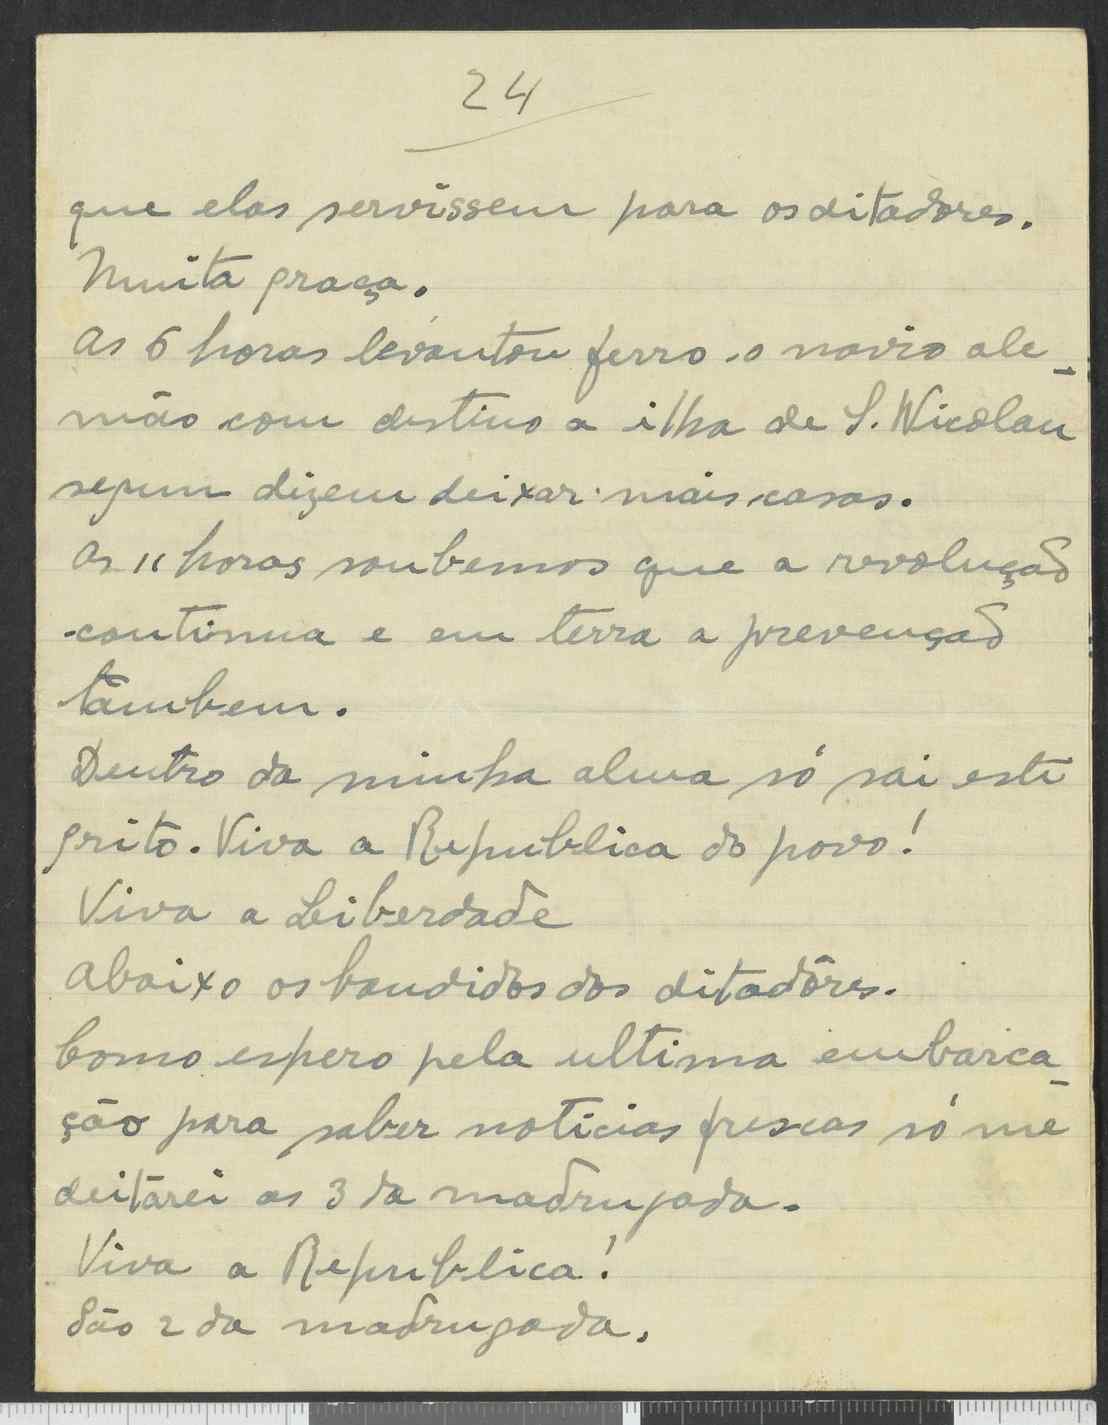 24
que elas servissem para os ditadores.
Muita graça.
As 6 horas levantou ferro o navio ale-
mão com destino a ilha de S. Nicolau
segum dizem deixar mais casas.
As 11 horas soubemos que a revolução
continua e em terra a prevenção
tambem.
Dentro da minha alma só sai este
grito. Viva a Republica do povo!
Viva a Leiberdade
Abaixo os bandidos dos ditadôres.
Como espero pela ultima embarca-
ção para saber noticias frescas só me
deitarei as 3 da madrugada.
Viva a Republica!
São 2 da madrugada.